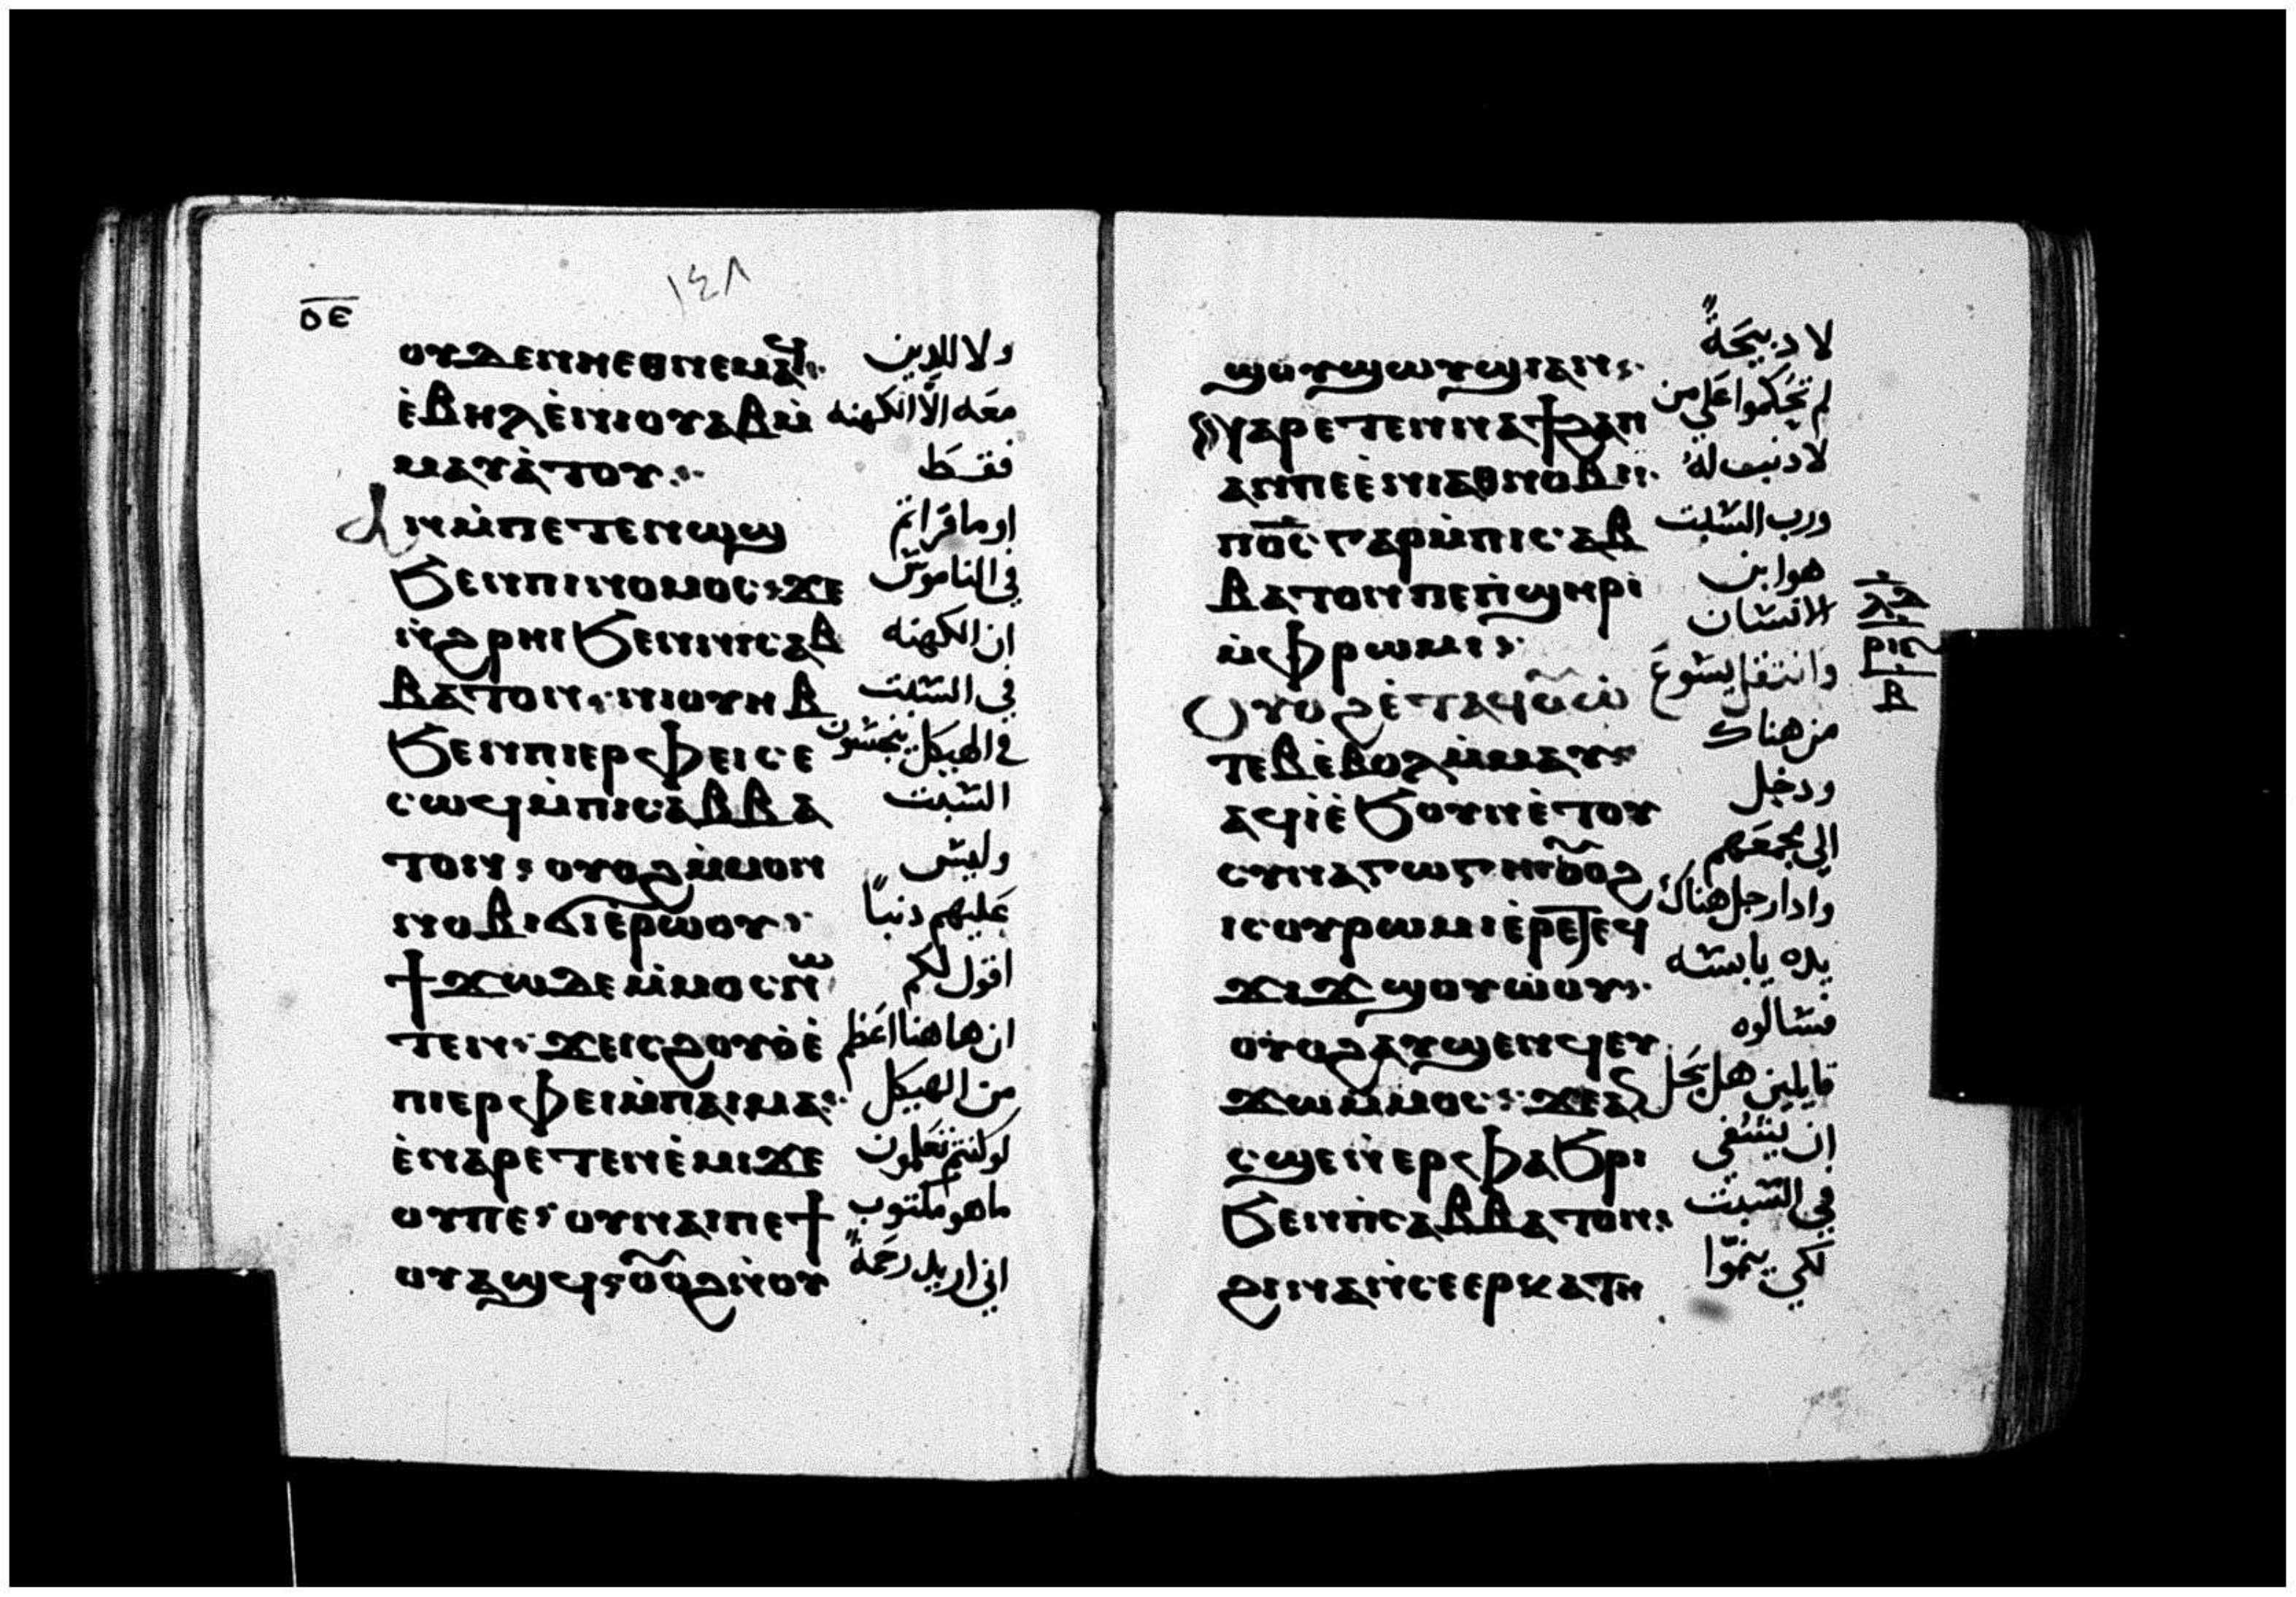 ⲟⲉ
١٤٨
ⲟⲩⲇⲉⲛⲛⲏⲉⲑⲛⲉⲙⲁϥ
ولا للدين
ⲉ̀ⲃⲏⲗⲉ̀ⲛⲓⲟⲩⲁⲃⲙ̀
معه الا الكهنه
ⲙⲁⲩⲁ̀ⲧⲟⲩ
فقط
ⲁⲛⲙ̀ⲡⲉⲧⲉⲛⲱϣ
او ما قراتم
ϧⲉⲛⲡⲓⲛⲟⲙⲟⲥ: ϫⲉ
في الناموس
ⲛ̀ϩⲣⲏⲓϧⲉⲛⲛⲓⲥⲁⲃ
ان الكهنه
ⲃⲁⲧⲟⲛ: ⲛⲓⲟⲩⲏⲃ
في السبت
ϧⲉⲛⲡⲓⲉⲣⲫⲉⲓⲥⲉ
في الهيكل ينجسون
ⲥⲱϥⲙ̀ⲡⲓⲥⲁⲃⲃⲁ
السبت
ⲧⲟⲛ: ⲟⲩⲟϩⲙ̀ⲙⲟⲛ
وليس
ⲛⲟⲃⲓϭⲓⲉ̀ⲣⲱⲟⲩ:
عليهم دنباً
ϯϫⲱⲇⲉⲙ̀ⲙⲟⲥⲛⲱ
اقول لكم
ⲧⲉⲛ: ϫⲉⲓⲥⲟⲩⲟ̀ⲉ̀
ان هاهنا اعظم
ⲡⲓⲉⲣⲫⲉⲓⲙ̀ⲡⲁⲓⲙⲁ:
من الهيكل
ⲉ̀ⲛⲁⲣⲉⲧⲉⲛⲉ̀ⲙⲓϫⲉ
لو كنتم تعلمون
ⲟⲩⲡⲉ: ⲟⲩⲛⲁⲓⲡⲉϯ
ما هو مكتوب
ⲟⲩⲁϣϥ: ⲟⲩⲟϩⲛ̀ⲟⲩ
اني اريد رحمةً
ϣⲟⲩϣⲱⲟⲩϣⲓⲁⲛ:
لا دبيحةً
ⲛⲁⲣⲉⲧⲉⲛⲛⲁϯϩⲁⲡ
لم تحكموا على من
ⲁⲛⲡⲉⲉ̀ⲛⲓⲁⲑⲛⲟⲃⲓ:
لا دنب له
ⲡⲟ̅ⲥ̅ⲅⲁⲣⲙ̀ⲡⲓⲥⲁⲃ
ورب السبت
ⲃⲁⲧⲟⲛⲡⲉⲡ̀ϣⲏⲣⲓ
هو ابن
ⲙ̀ⲫⲣⲱⲙⲓ:
الانسان
ⲟⲩⲟϩⲉ̀ⲧⲁϥⲟⲩⲱ̀
وانتقل يسوع
ⲧⲉⲃⲉ̀ⲃⲟⲗⲙ̀ⲙⲁⲩ:
من هناك
ⲗⲍ
ⲣⲓⲋ
ⲃ
ⲁϥⲓ̀ⲉ̀ϧⲟⲩⲛⲉ̀ⲧⲟⲩ
ودخل
ⲥⲩⲛⲁⲅⲱⲅⲏⲟⲩⲟϩ
الي مجمعهم
ⲓⲥⲟⲩⲣⲱⲙⲓⲉ̀ⲣⲉⲧⲉϥ
وادا رجل هناك
ϫⲓϫϣⲟⲩⲱ̀ⲟⲩ:
يده يابسه
ⲟⲩⲟϩⲁⲩϣⲉⲛϥⲉⲩ
فسالوه
ϫⲱⲙ̀ⲙⲟⲥ: ϫⲉⲁⲛ
قايلين هل يحل
ⲥϣⲉⲛ̀ⲉⲣⲫⲁϧⲣⲓ
ان يشفى
ϧⲉⲛⲡ̀ⲥⲁⲃⲃⲁⲧⲟⲛ:
في السبت
ϩⲓⲛⲁⲛ̀ⲥⲉⲉⲣⲕⲁⲧⲏ
لكي ينموا